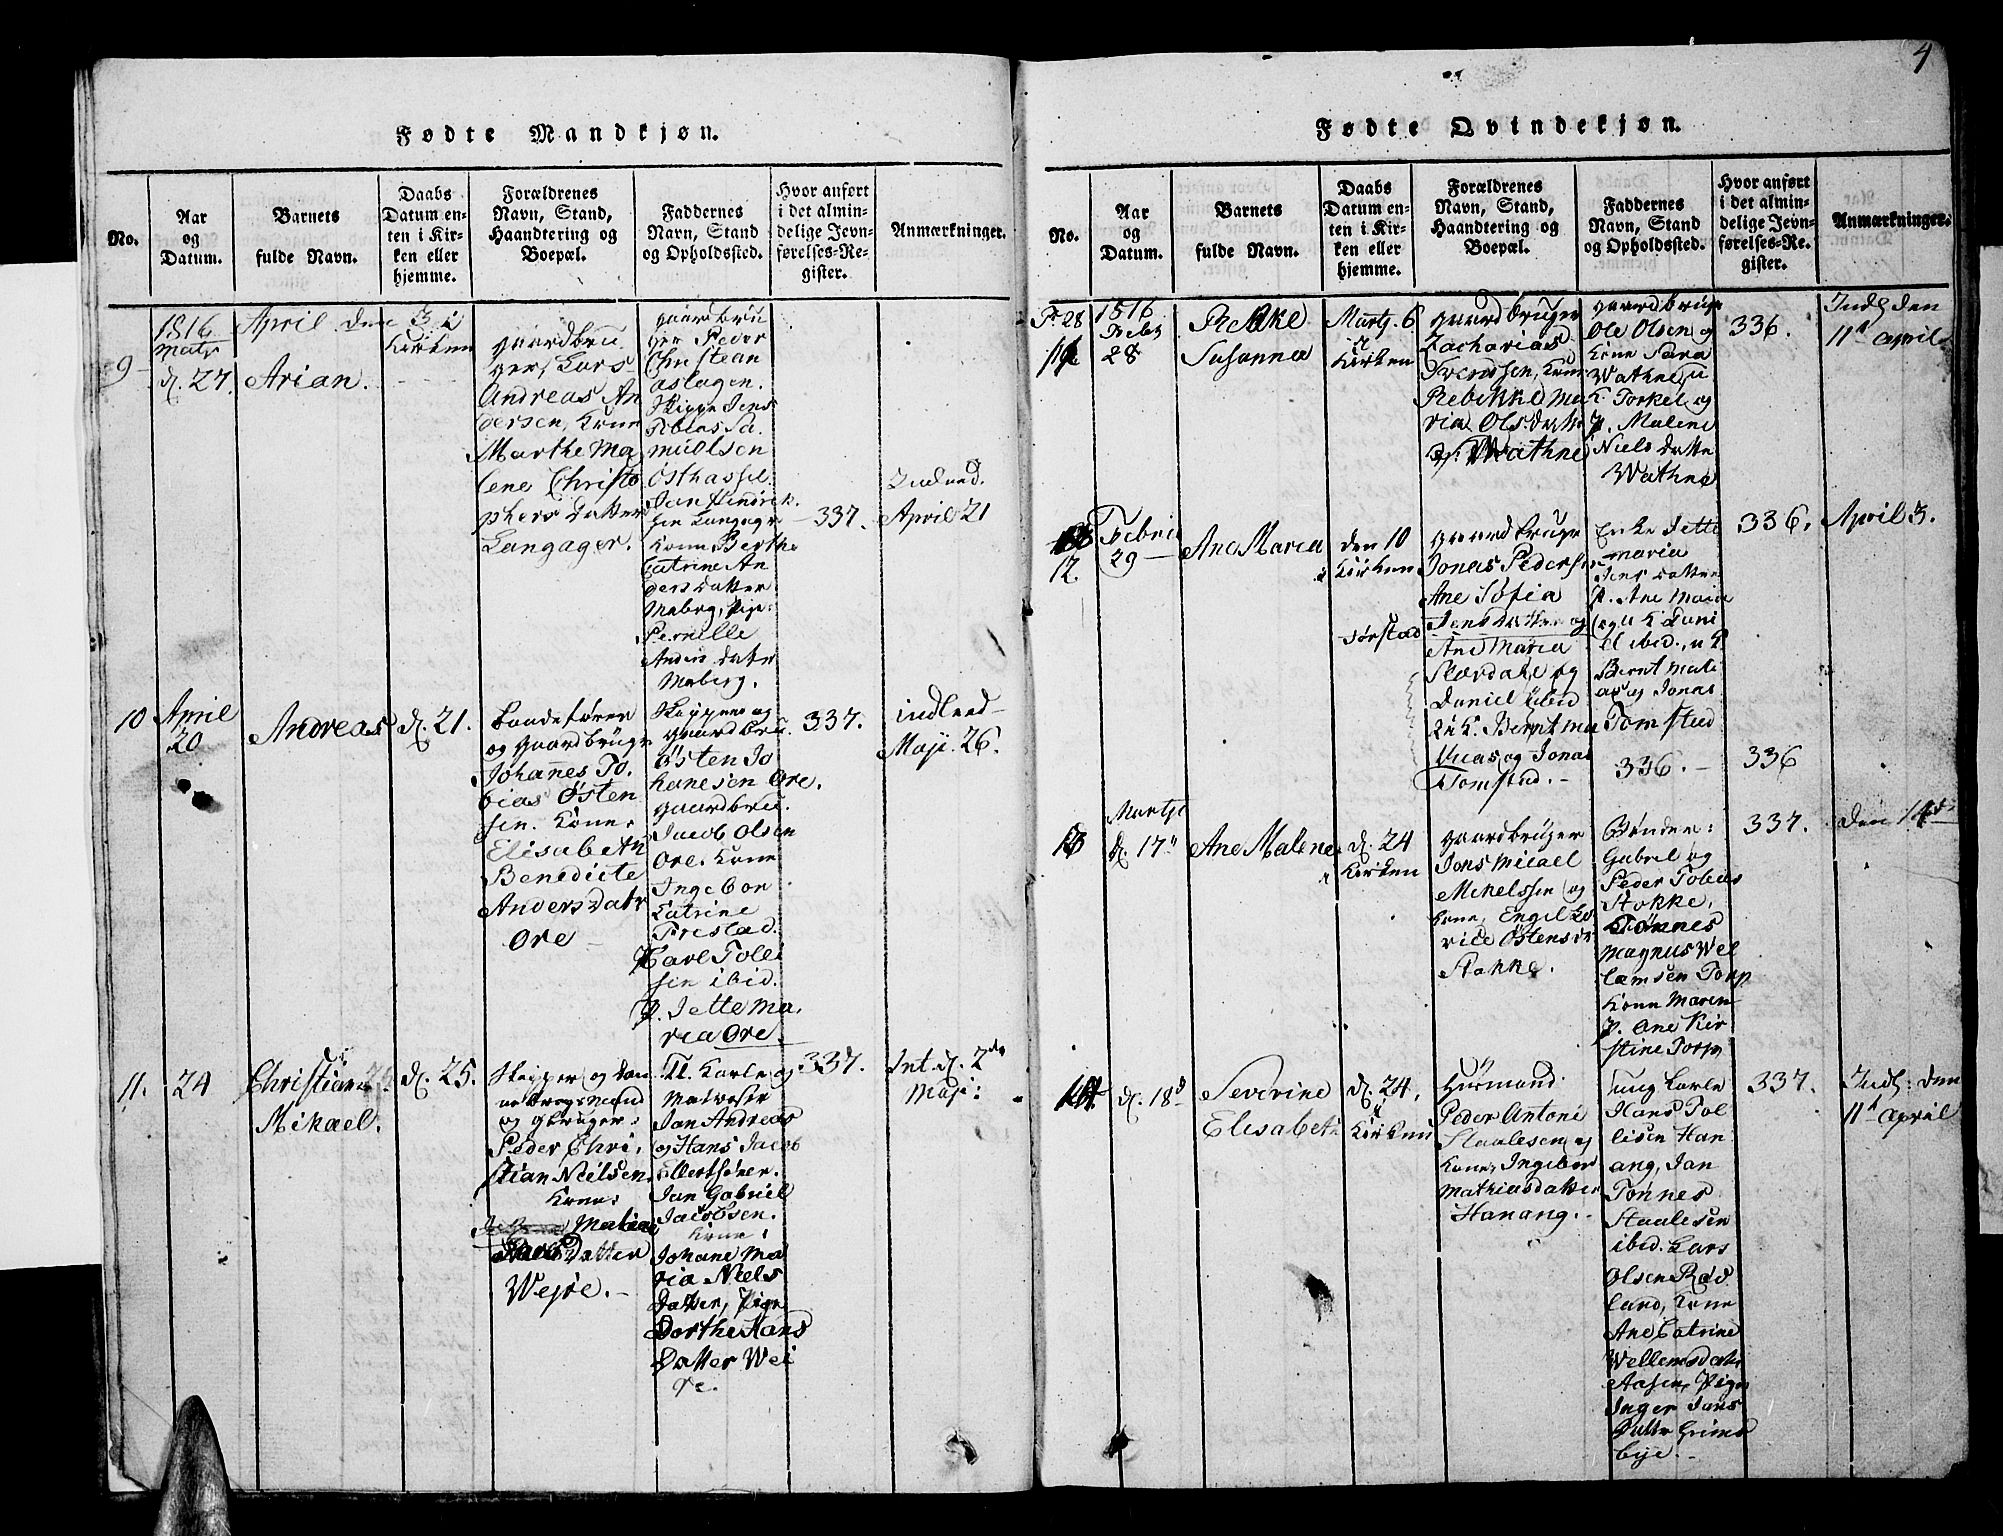 4
Fødte Mandkjøn.
No.
Aar
og
Datum.
Barnets
fulde Navn.
Daabs
Datum en-
ten i Kir-
ken eller
hjemme.
Forældrenes
Navn, Stand,
Haandtering og
Boepæl.
Faddernes
Navn, Stand
og Opholdssted.
Hvor anført
i det almin-
delige Jevn-
førelses-Re-
gister.
Anmærkninger.
9
1816
d. 27
April den 3 i
Kirken
Arian.
gaardbru
ger Lars
Andreas An
dersen, Kone
Marthe Ma
lene Christo
phers datter
Langager.
gaardbru
ger Peder
Christean
aslagen.
Skipp Jens
Tobias Sa
muelsen
Osthassel.
Jan Hindrik
sen Langage
Kone Berthe
Catrine An
ders datter
Maberg, Pige
Pernille
Anders dater
Maberg.
337.
Indlved.
April 21
10
April
20
Andreas
d. 21.
og gaardbruge
Johannes To
bias Østen
sen. Kone.
Elisabeth
Benedicte
Andersdatr
Ore
Skippere og
gaardbru.
Østen Jo
hanesen Ore.
gaardbru.
Jacob Olsen
Ore. Kone
Ingebor
Catrine
Prestad.
Karl Tolli
sen ibid.
P. Jette Ma
ria Ore.
337.
indlved
Maji. 26.
11.
24
Christian
Mikael.
d. 25.
Skipper og Dan
nebrogsmand
og gbruger:
Peder Chri
stian Nielsen.
Kone:
datter
Wejre.
Karle og
Jan Andreas
og Hans Jacob
Ellertsøner.
Jan Gabriel
Jacobsen.
Kone:
Johane Ma
ria Niels
Datter, Pige
Dorthe Hans
Datter Wei
re.
337.
Int. d. 2de
Maji:
Fødte Qvindekjøn.
No.
Aar
og
Datum.
Barnets
fulde Navn.
Daabs
Datum en-
ten i Kir-
ken eller
hjemme.
Forældrenes
Navn, Stand,
Haandtering og
Boepæl.
Faddernes
Navn, Stand
og Opholdssted.
Hvor anført
i det almin-
delige Jevn-
førelses-Re-
gister.
Anmærkninger.
11
1816
Febr
28
Rebekke
Susanna
Martj. 6
i
Kirken
gaardbruger
Zacharias
Svendsen, Kone
Rebekke Ma
ria Olsdatte
Wathne
gaardbruge
Ole Olsen og
Kone Sara
Wathne, u
K. Torkel og
P. Malene
Niels datte
Wathne
336.
Indf den
11t April
12.
Febrii
29
Ane Maria
den 10
i Kirken
gaardbruger
Jonas Peders
Ane Sofia
Jens datter og
Ane Maria
Daniel ibid
u K. Bernt Ma
thias og Jonas
Tomstad.
Enke Jette
maria
Jens datter
P. Ane Maria
og u K Dani
el ibid., u K
Bernt Mati
as og Jonas
Tomstad
336.
336.
336
April 3.
13
Martji
d. 17
Ane Malene
d. 24
i Kirken
gaardbruger
Jens Micael
Mikelssen og
Kone, Engel Lo
vice Østensdr
Stokke.
Bønder:
Gabrel og
Peder Tobias
Stokke.
Tønnes
Magnus Wel
lamsen Torp
Kone Maren
P. Ane Kir
stine Torp
337.
den 14de
14
d. 18d
Severine
Elisabeth
d. 24,
i
Kirken
Husmand
Peder Antoni
Staalesen og
Kone, Ingebor
Mathiasdatter
Hanang.
ung karle
Hans Tol
lisen Han
ang, Jan
Tonnes
Staalesen
ibid. Lars
Olsen Rød
land, Kone
Ane Catrine
Wellemsdatr
Aasen, Pige
Inger Jans
Datter Grims
bye.
337.
Indf: den
11t April